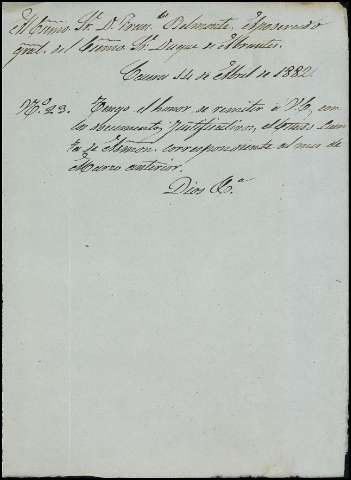 Al Excmo. Sr. D. Fran.co Belmonte, Apoderado
gral. del Excmo. Sr. Duque de Abrantes.
14 de Abril de 1882
N.º 23. Tengo el honor de remitir á V.E. con
los documentos justificativos, el Cuen
ta de Admon. correspondiente al mes de
Marzo anterior.
Dios &.a